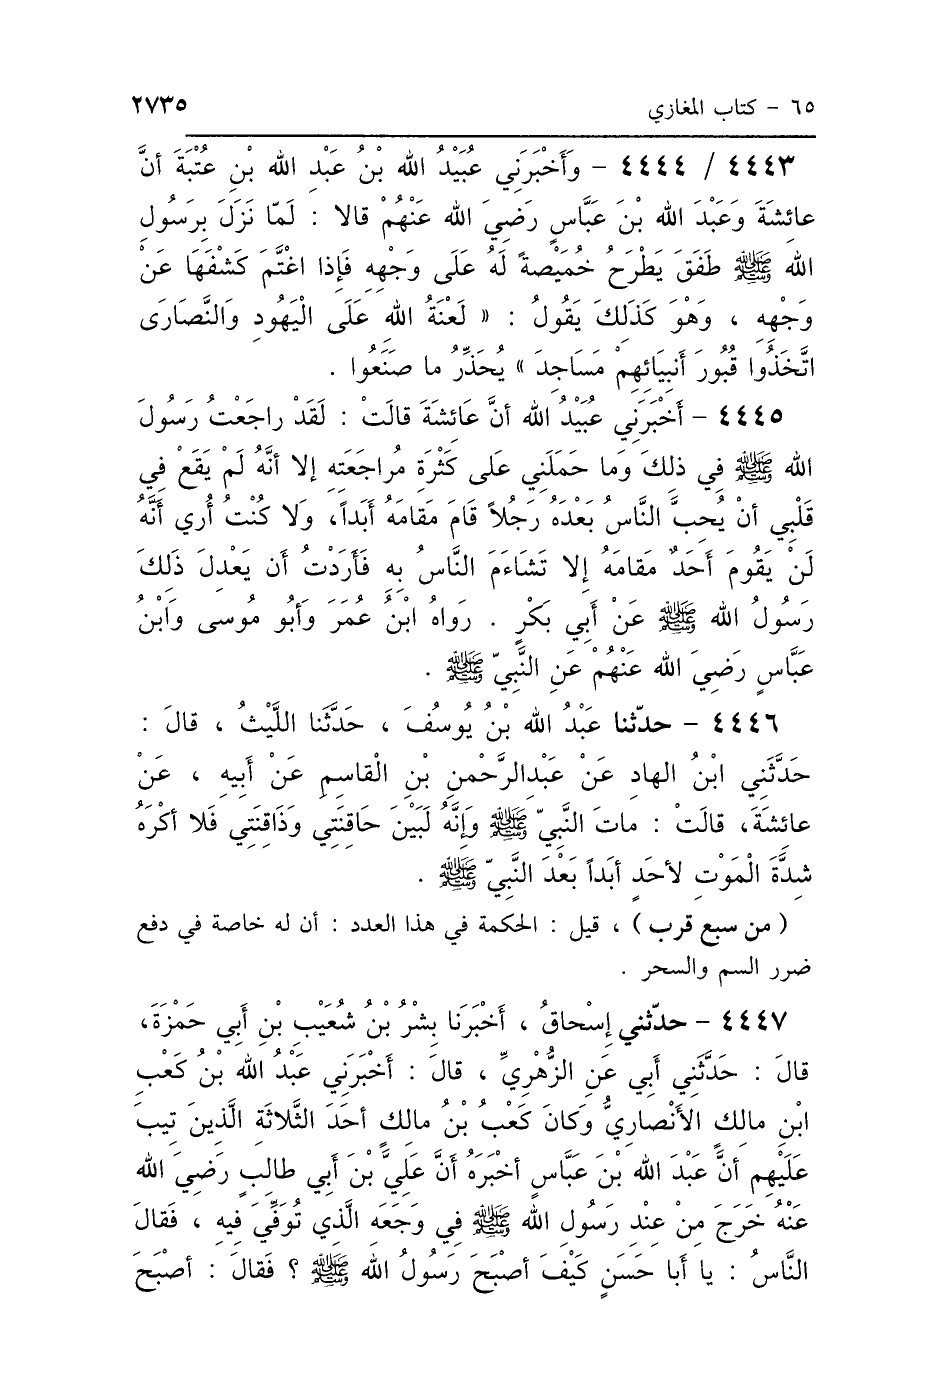 ٦٥ - كتاب المغازي ٢٧٣٥
٤٤٤٣ / ٤٤٤٤ - وَأَخْبَرَنِي عُبَيْدُ الله بْنُ عَبْدِ الله بْنِ عُتْبَةَ أنَّ
عائِشَةَ وَعَبْدَ الله بْنَ عَبَّاسٍ رَضِيَ الله عَنْهُمْ قالا : لَمّا نَزَلَ بِرَسُولِ
الله ﷺ طَفَقَ يَطْرَحُ خَمِيْصةً لَهُ عَلَى وَجْهِهِ فَإذا اغْتَمَ كَشْفَهَا عَنْ
وَجْهِهِ ، وَهْوَ كَذَلِكَ يَقُولُ : « لَعْنَةُ الله عَلَى الْيَهُودِ وَالنَّصَارَى
اتَّخَذُوا قُبُورَ أنبِيَائِهِمْ مَسَاجِدَ » يُحَذِّرُ ما صَنَعُوا .
٤٤٤٥ - أَخْبَرَنِي عُبَيْدُ الله أنَّ عَائِشَةَ قالَتْ : لَقَدْ راجَعْتُ رَسُولَ
الله ﷺ فِي ذلِكَ وَما حَمَلَنِي عَلى كَثْرَةِ مُراجَعَتِهِ إلا أنَّهُ لَمْ يَقَعْ فِي
قَلْبِي أنْ يُحِبَّ النَّاسُ بَعْدَهُ رَجُلاً قَامَ مَقامَهُ أَبَداً، وَلا كُنْتُ أُرِي أَنَّهُ
لَنْ يَقُومَ أَحَدٌ مَقامَهُ إلا تَشَاءَمَ النَّاسُ بِهِ فَأَرَدْتُ أن يَعْدِلَ ذَلِكَ
رَسُولُ الله ﷺ عَنْ أَبِي بَكْرٍ . رَواهُ ابْنُ عُمَرَ وَأَبُو مُوسى وَابْنُ
عَبَّاسٍ رَضِيَ الله عَنْهُمْ عَنِ النَّبِيّ ﷺ .
٤٤٤٦ - حدّثنا عَبْدُ الله بْنُ يُوسُفَ ، حَدَّثَنا اللَّيْثُ ، قالَ :
حَدَّثَنِي ابْنُ الهادِ عَنْ عَبْدِالرَّحْمنِ بْنِ الْقاسِمِ عَنْ أَبِيهِ ، عَنْ
عائِشةَ، قالَتْ : ماتَ النَّبِيّ ﷺ وَإنَّهُ لَبَيْنَ حَاقِنَتِي وَذَاقِنَتِي فَلا أكْرَهُ
شِدَّةَ الْمَوْتِ لأحَدٍ أبَداً بَعْدَ النَّبِيّ ﷺ .
( من سبع قرب ) ، قيل : الحكمة في هذا العدد : أن له خاصة في دفع
ضرر السم والسحر .
٤٤٤٧ - حدّثني إسْحاقُ ، أَخْبَرَنَا بِشْرُ بْنُ شُعَيْبِ بْنِ أَبِي حَمْزَةَ،
قالَ : حَدَّثَنِي أَبِي عَنِ الزُّهْرِيِّ ، قالَ : أَخْبَرَنِي عَبْدُ الله بْنُ كَعْبِ
ابْنِ مالِكٍ الأَنْصارِيُّ وَكانَ كَعْبُ بْنُ مالِكٍ أحَدَ الثَّلاثَةِ الَّذِينَ تِيبَ
عَلَيْهِم أنَّ عَبْدَ الله بْنَ عَبَّاسٍ أخْبَرَهُ أنَّ عَلِيَّ بْنَ أَبِي طالِبٍ رَضِيَ الله
عَنْهُ خَرَجَ مِنْ عِنْدِ رَسُولِ الله ﷺ فِي وَجَعَهِ الَّذِي تُوَفِّيَ فِيهِ ، فَقالَ
النَّاسُ : يا أبا حَسَنٍ كَيْفَ أصْبَحَ رَسُولُ الله ﷺ ؟ فَقالَ : أصْبَحَ